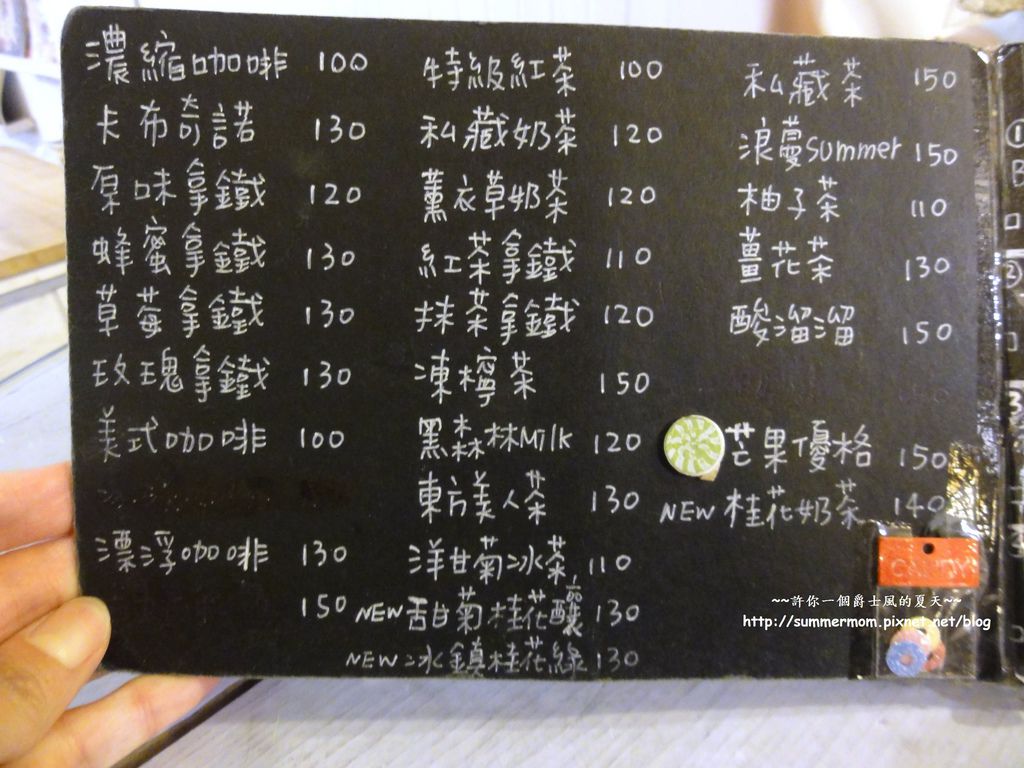 濃縮咖啡 100
卡布奇諾 130
原味拿鐵 120
蜂蜜拿鐵 130
草莓拿鐵 130
玫瑰拿鐵 130
美式咖啡 100
漂浮咖啡 130
150
特級紅茶 100
私藏奶茶 120
薰衣草奶茶 120
紅茶拿鐵 110
抹茶拿鐵 120
凍檸茶 150
黑森林Milk 120
東方美人茶 130
洋甘菊冰茶 110
NEW 甜菊桂花釀 130
NEW 冰鎮桂花綠 130
私藏茶 150
浪蔓summer 150
柚子茶 110
薑花茶 130
酸溜溜 150
芒果優格 150
NEW 桂花奶茶 140
CANDY
~~許你一個爵士風的夏天~~
http://summermom.pixnet.net/blog